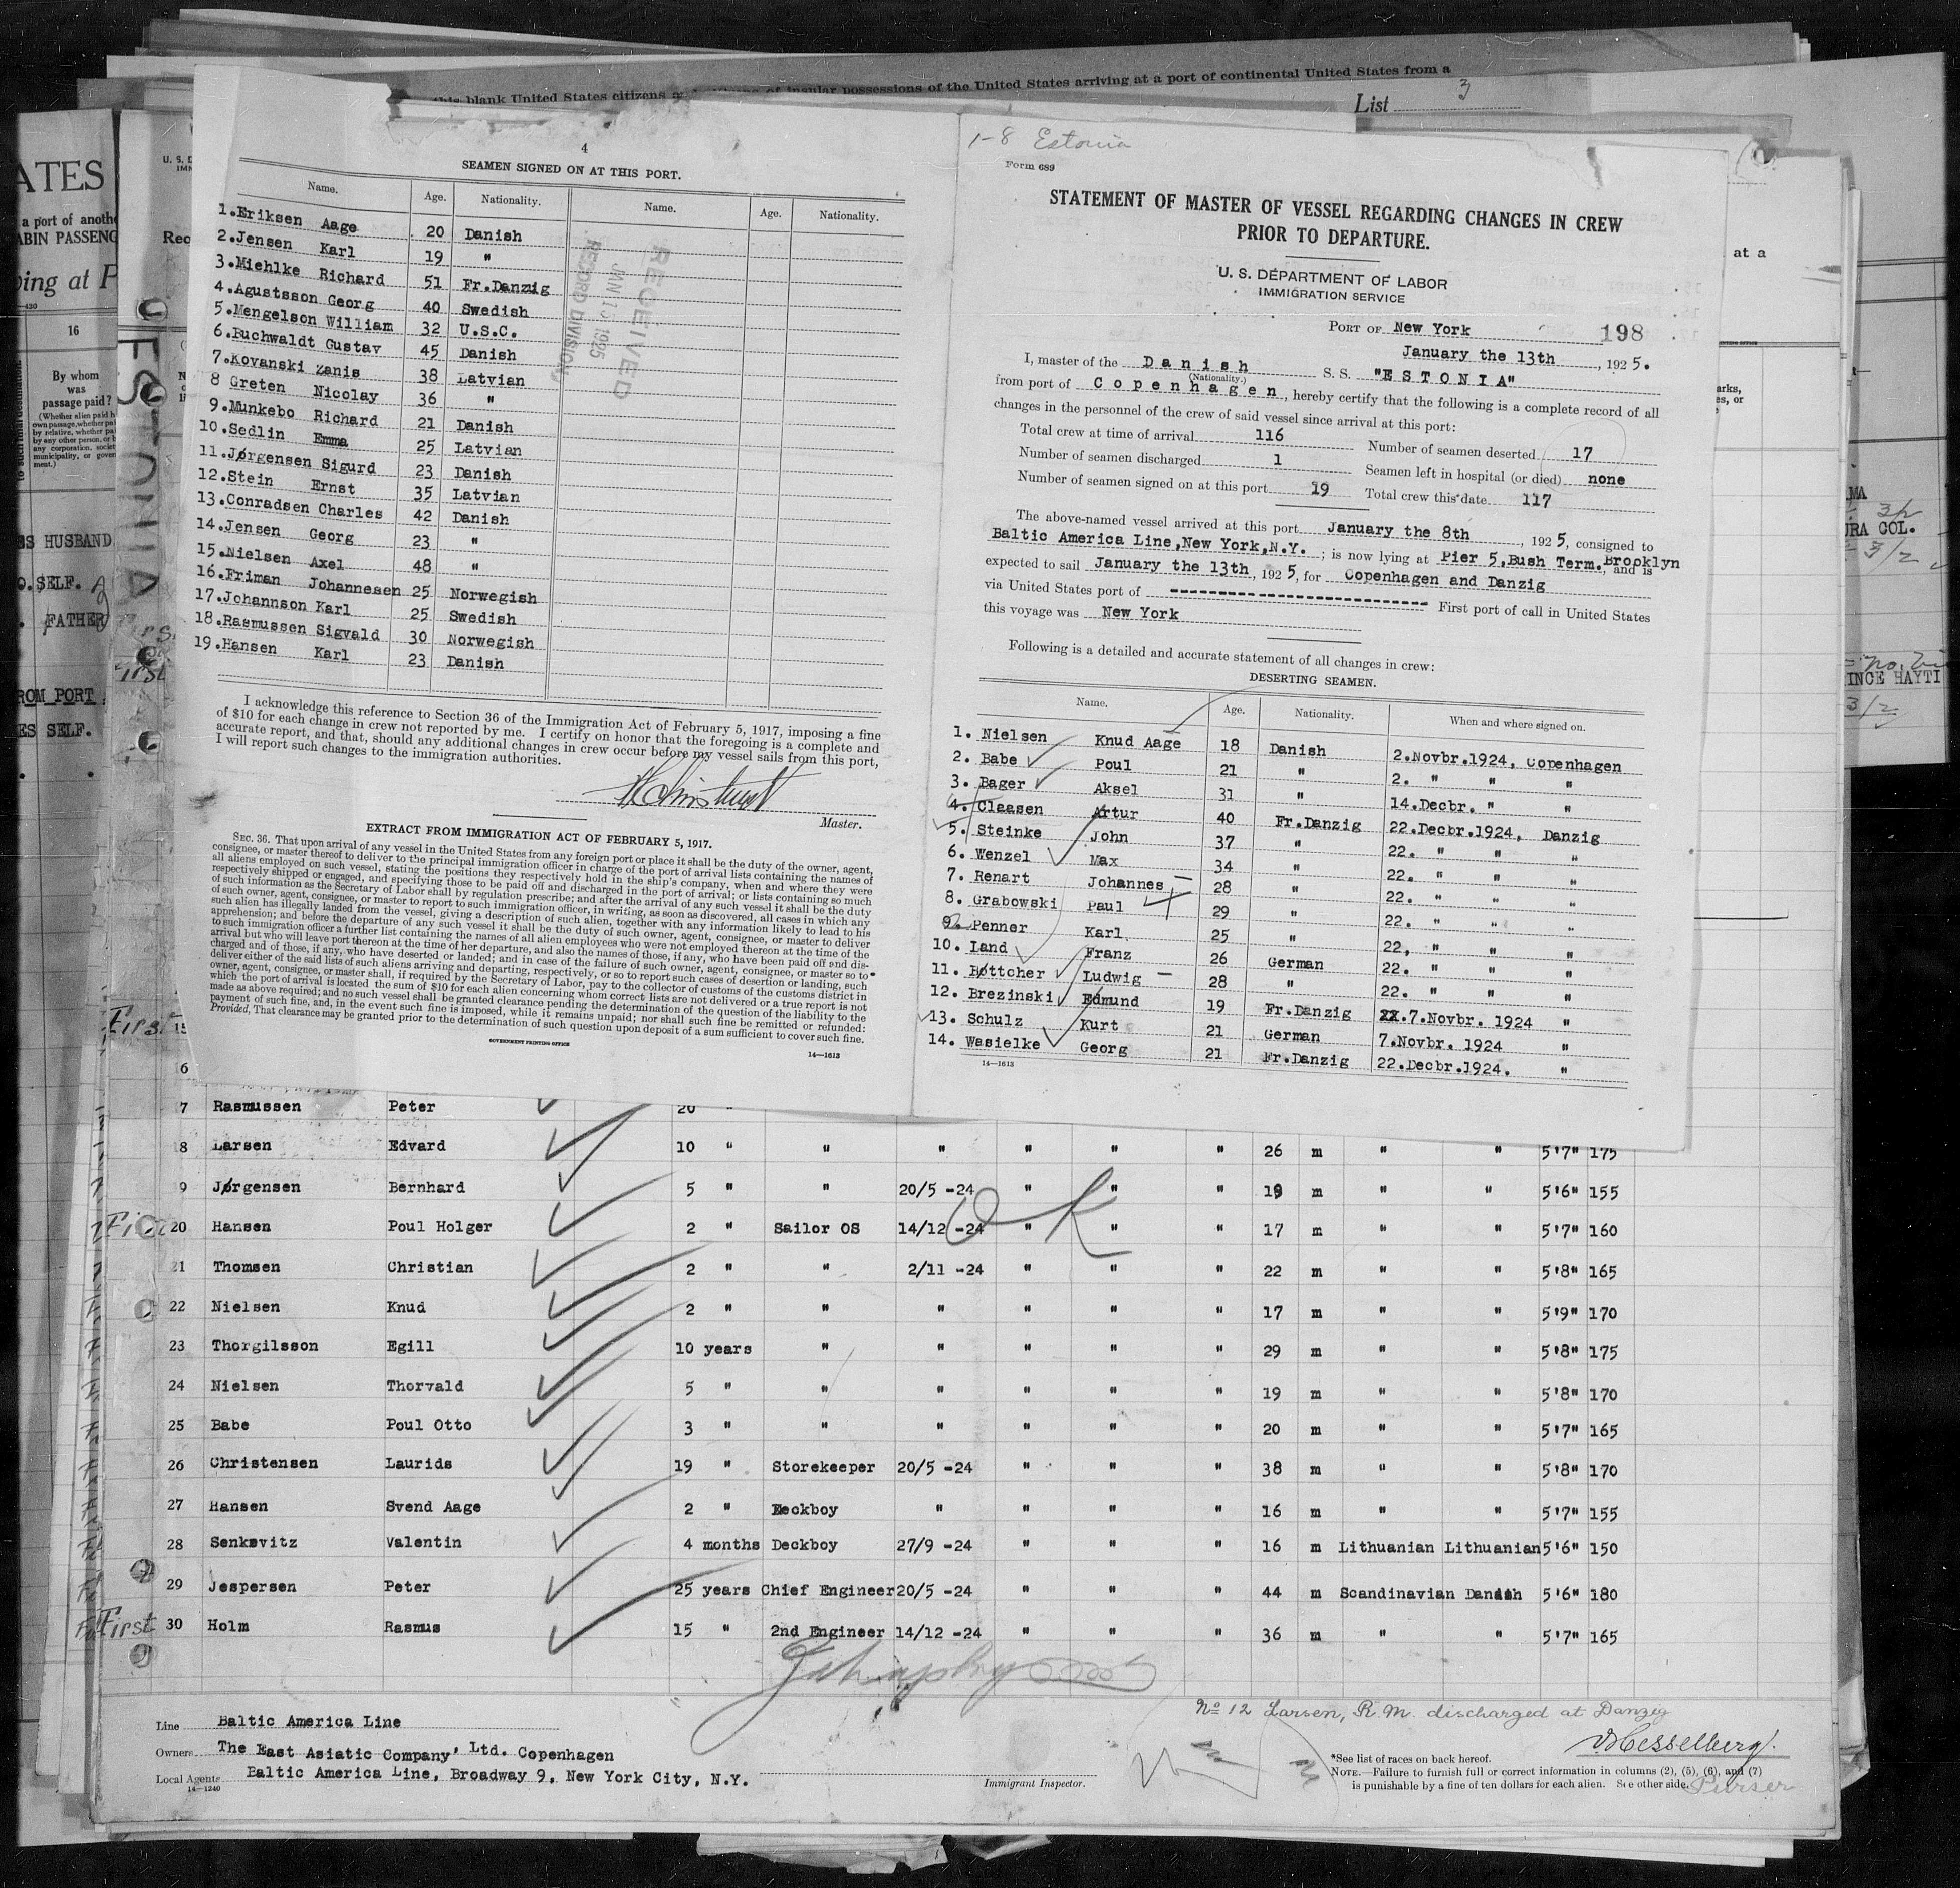 this blank United States citizens or insular possessions of the United States arriving at a port of continental United States from a
List 3
ATES
a port of anoth
ABIN PASSENG
ving at P
16
By whom
was
passage paid?
SS HUSBAND
SELF.
FATHER
ROM PORT
ES SELF.
ESTONIA
4
SEAMEN SIGNED ON AT THIS PORT.
Name. Age. Nationality. Name. Age. Nationality.
1. Eriksen Aage 20 Danish
2. Jensen Karl 19 "
3. Miehlke Richard 51 Fr.Danzig
4. Agustsson Georg 40 Swedish
5. Mengelson William 32 U.S.C.
6. Buchwaldt Gustav 45 Danish
7. Kovanski Zanis 38 Latvian
8 Greten Nicolay 36 "
9. Munkebo Richard 21 Danish
10. Sedlin Emma 25 Latvian
11. Jørgensen Sigurd 23 Danish
12. Stein Ernst 35 Latvian
13. Conradsen Charles 42 Danish
14. Jensen Georg 23 "
15. Nielsen Axel 48 "
16. Friman Johannesen 25 Norwegish
17. Johannson Karl 25 Swedish
18. Rasmussen Sigvald 30 Norwegish
19. Hansen Karl 23 Danish
RECEIVED
JAN 1 1925
RECORD DIVISION
I acknowledge this reference to Section 36 of the Immigration Act of February 5, 1917, imposing a fine
of $10 for each change in crew not reported by me. I certify on honor that the foregoing is a complete and
accurate report, and that, should any additional changes in crew occur before my vessel sails from this port,
I will report such changes to the immigration authorities.
Master.
EXTRACT FROM IMMIGRATION ACT OF FEBRUARY 5, 1917.
SEC. 36. That upon arrival of any vessel in the United States from any foreign port or place it shall be the duty of the owner, agent,
consignee, or master thereof to deliver to the principal immigration officer in charge of the port of arrival lists containing the names of
all aliens employed on such vessel, stating the positions they respectively hold in the ship's company, when and where they were
respectively shipped or engaged, and specifying those to be paid off and discharged in the port of arrival; or lists containing so much
of such information as the Secretary of Labor shall by regulation prescribe; and after the arrival of any such vessel it shall be the duty
of such owner, agent, consignee, or master to report to such immigration officer, in writing, as soon as discovered, all cases in which any
such alien has illegally landed from the vessel, giving a description of such alien, together with any information likely to lead to his
apprehension; and before the departure of any such vessel it shall be the duty of such owner, agent, consignee, or master to deliver
to such immigration officer a further list containing the names of all alien employees who were not employed thereon at the time of the
arrival but who will leave port thereon at the time of her departure, and also the names of those, if any, who have been paid off and dis-
charged and of those, if any, who have deserted or landed; and in case of the failure of such owner, agent, consignee, or master so to
deliver either of the said lists of such aliens arriving and departing, respectively, or so to report such cases of desertion or landing, such
owner, agent, consignee, or master shall, if required by the Secretary of Labor, pay to the collector of customs of the customs district in
which the port of arrival is located the sum of $10 for each alien concerning whom correct lists are not delivered or a true report is not
made as above required; and no such vessel shall be granted clearance pending the determination of the question of the liability to the
payment of such fine, and, in the event such fine is imposed, while it remains unpaid; nor shall such fine be remitted or refunded:
Provided, That clearance may be granted prior to the determination of such question upon deposit of a sum sufficient to cover such fine.
GOVERNMENT PRINTING OFFICE
14—1613
1-8 Estonia
Form 689
STATEMENT OF MASTER OF VESSEL REGARDING CHANGES IN CREW
PRIOR TO DEPARTURE.
U. S. DEPARTMENT OF LABOR
IMMIGRATION SERVICE
PORT OF New York 198
January the 13th, 1925.
I, master of the Danish S. S. "ESTONIA"
(Nationality.)
from port of Copenhagen, hereby certify that the following is a complete record of all
changes in the personnel of the crew of said vessel since arrival at this port:
Total crew at time of arrival 116 Number of seamen deserted 17
Number of seamen discharged 1 Seamen left in hospital (or died) none
Number of seamen signed on at this port 19 Total crew this date 117
The above-named vessel arrived at this port January the 8th, 1925, consigned to
Baltic America Line, New York, N.Y.; is now lying at Pier 5, Bush Term. Brooklyn, and is
expected to sail January the 13th, 1925, for Copenhagen and Danzig
via United States port of ---------- First port of call in United States
this voyage was New York
Following is a detailed and accurate statement of all changes in crew:
DESERTING SEAMEN.
Name. Age. Nationality. When and where signed on.
1. Nielsen Knud Aage 18 Danish 2.Novbr.1924, Copenhagen
2. Babe Poul 21 " 2. " " "
3. Bager Aksel 31 " 14.Decbr. " "
4. Claasen Artur 40 Fr.Danzig 22.Decbr.1924, Danzig
5. Steinke John 37 " 22. " " "
6. Wenzel Max 34 " 22. " " "
7. Renart Johannes 28 " 22. " " "
8. Grabowski Paul 29 " 22. " " "
9. Penner Karl 25 " 22, " " "
10. Land Franz 26 German 22. " " "
11. Bøttcher Ludwig 28 " 22. " " "
12. Brezinski Edmund 19 Fr.Danzig 7.Novbr. 1924 "
13. Schulz Kurt 21 German 7.Novbr. 1924 "
14. Wasielke Georg 21 Fr.Danzig 22.Decbr.1924. "
14—1613
at a
URA COL.
INCE HAYTI
First 15
16
7 Rasmussen Peter 20 "
8 Larsen Edvard 10 " " " " " " 26 m " " 5'7" 175
9 Jørgensen Bernhard 5 " " 20/5 -24 " " " 19 m " " 5'6" 155
20 Hansen Poul Holger 2 " Sailor OS 14/12 -24 " " " 17 m " " 5'7" 160
OK
21 Thomsen Christian 2 " " 2/11 -24 " " " 22 m " " 5'8" 165
22 Nielsen Knud 2 " " " " " " 17 m " " 5'9" 170
23 Thorgilsson Egill 10 years " " " " " 29 m " " 5'8" 175
24 Nielsen Thorvald 5 " " " " " " 19 m " " 5'8" 170
25 Babe Poul Otto 3 " " " " " " 20 m " " 5'7" 165
26 Christensen Laurids 19 " Storekeeper 20/5 -24 " " " 38 m " " 5'8" 170
27 Hansen Svend Aage 2 " Deckboy " " " " 16 m " " 5'7" 155
28 Senkevitz Valentin 4 months Deckboy 27/9 -24 " " " 16 m Lithuanian Lithuanian 5'6" 150
29 Jespersen Peter 25 years Chief Engineer 20/5 -24 " " " 44 m Scandinavian Danish 5'6" 180
First 30 Holm Rasmus 15 " 2nd Engineer 14/12 -24 " " " 36 m " " 5'7" 165
No 12 Larsen, R.M. discharged at Danzig
Line Baltic America Line
Owners The East Asiatic Company, Ltd. Copenhagen
Local Agents Baltic America Line, Broadway 9, New York City, N.Y.
14—1240
Immigrant Inspector.
Hesselberg.
Purser
*See list of races on back hereof.
NOTE.—Failure to furnish full or correct information in columns (2), (5), (6), and (7)
is punishable by a fine of ten dollars for each alien. See other side.